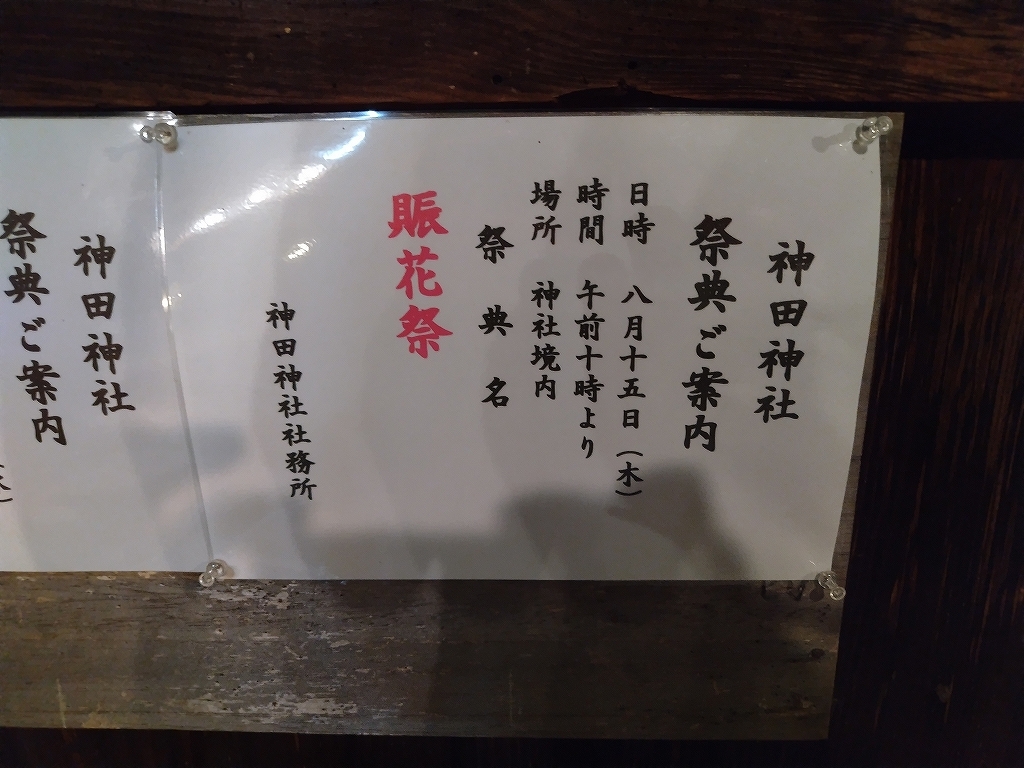 神田神社
祭典ご案内
日時 八月十五日(木)
時間 午前十時より
場所 神社境内
祭典名
賑花祭
神田神社社務所
神田神社
祭典ご案内